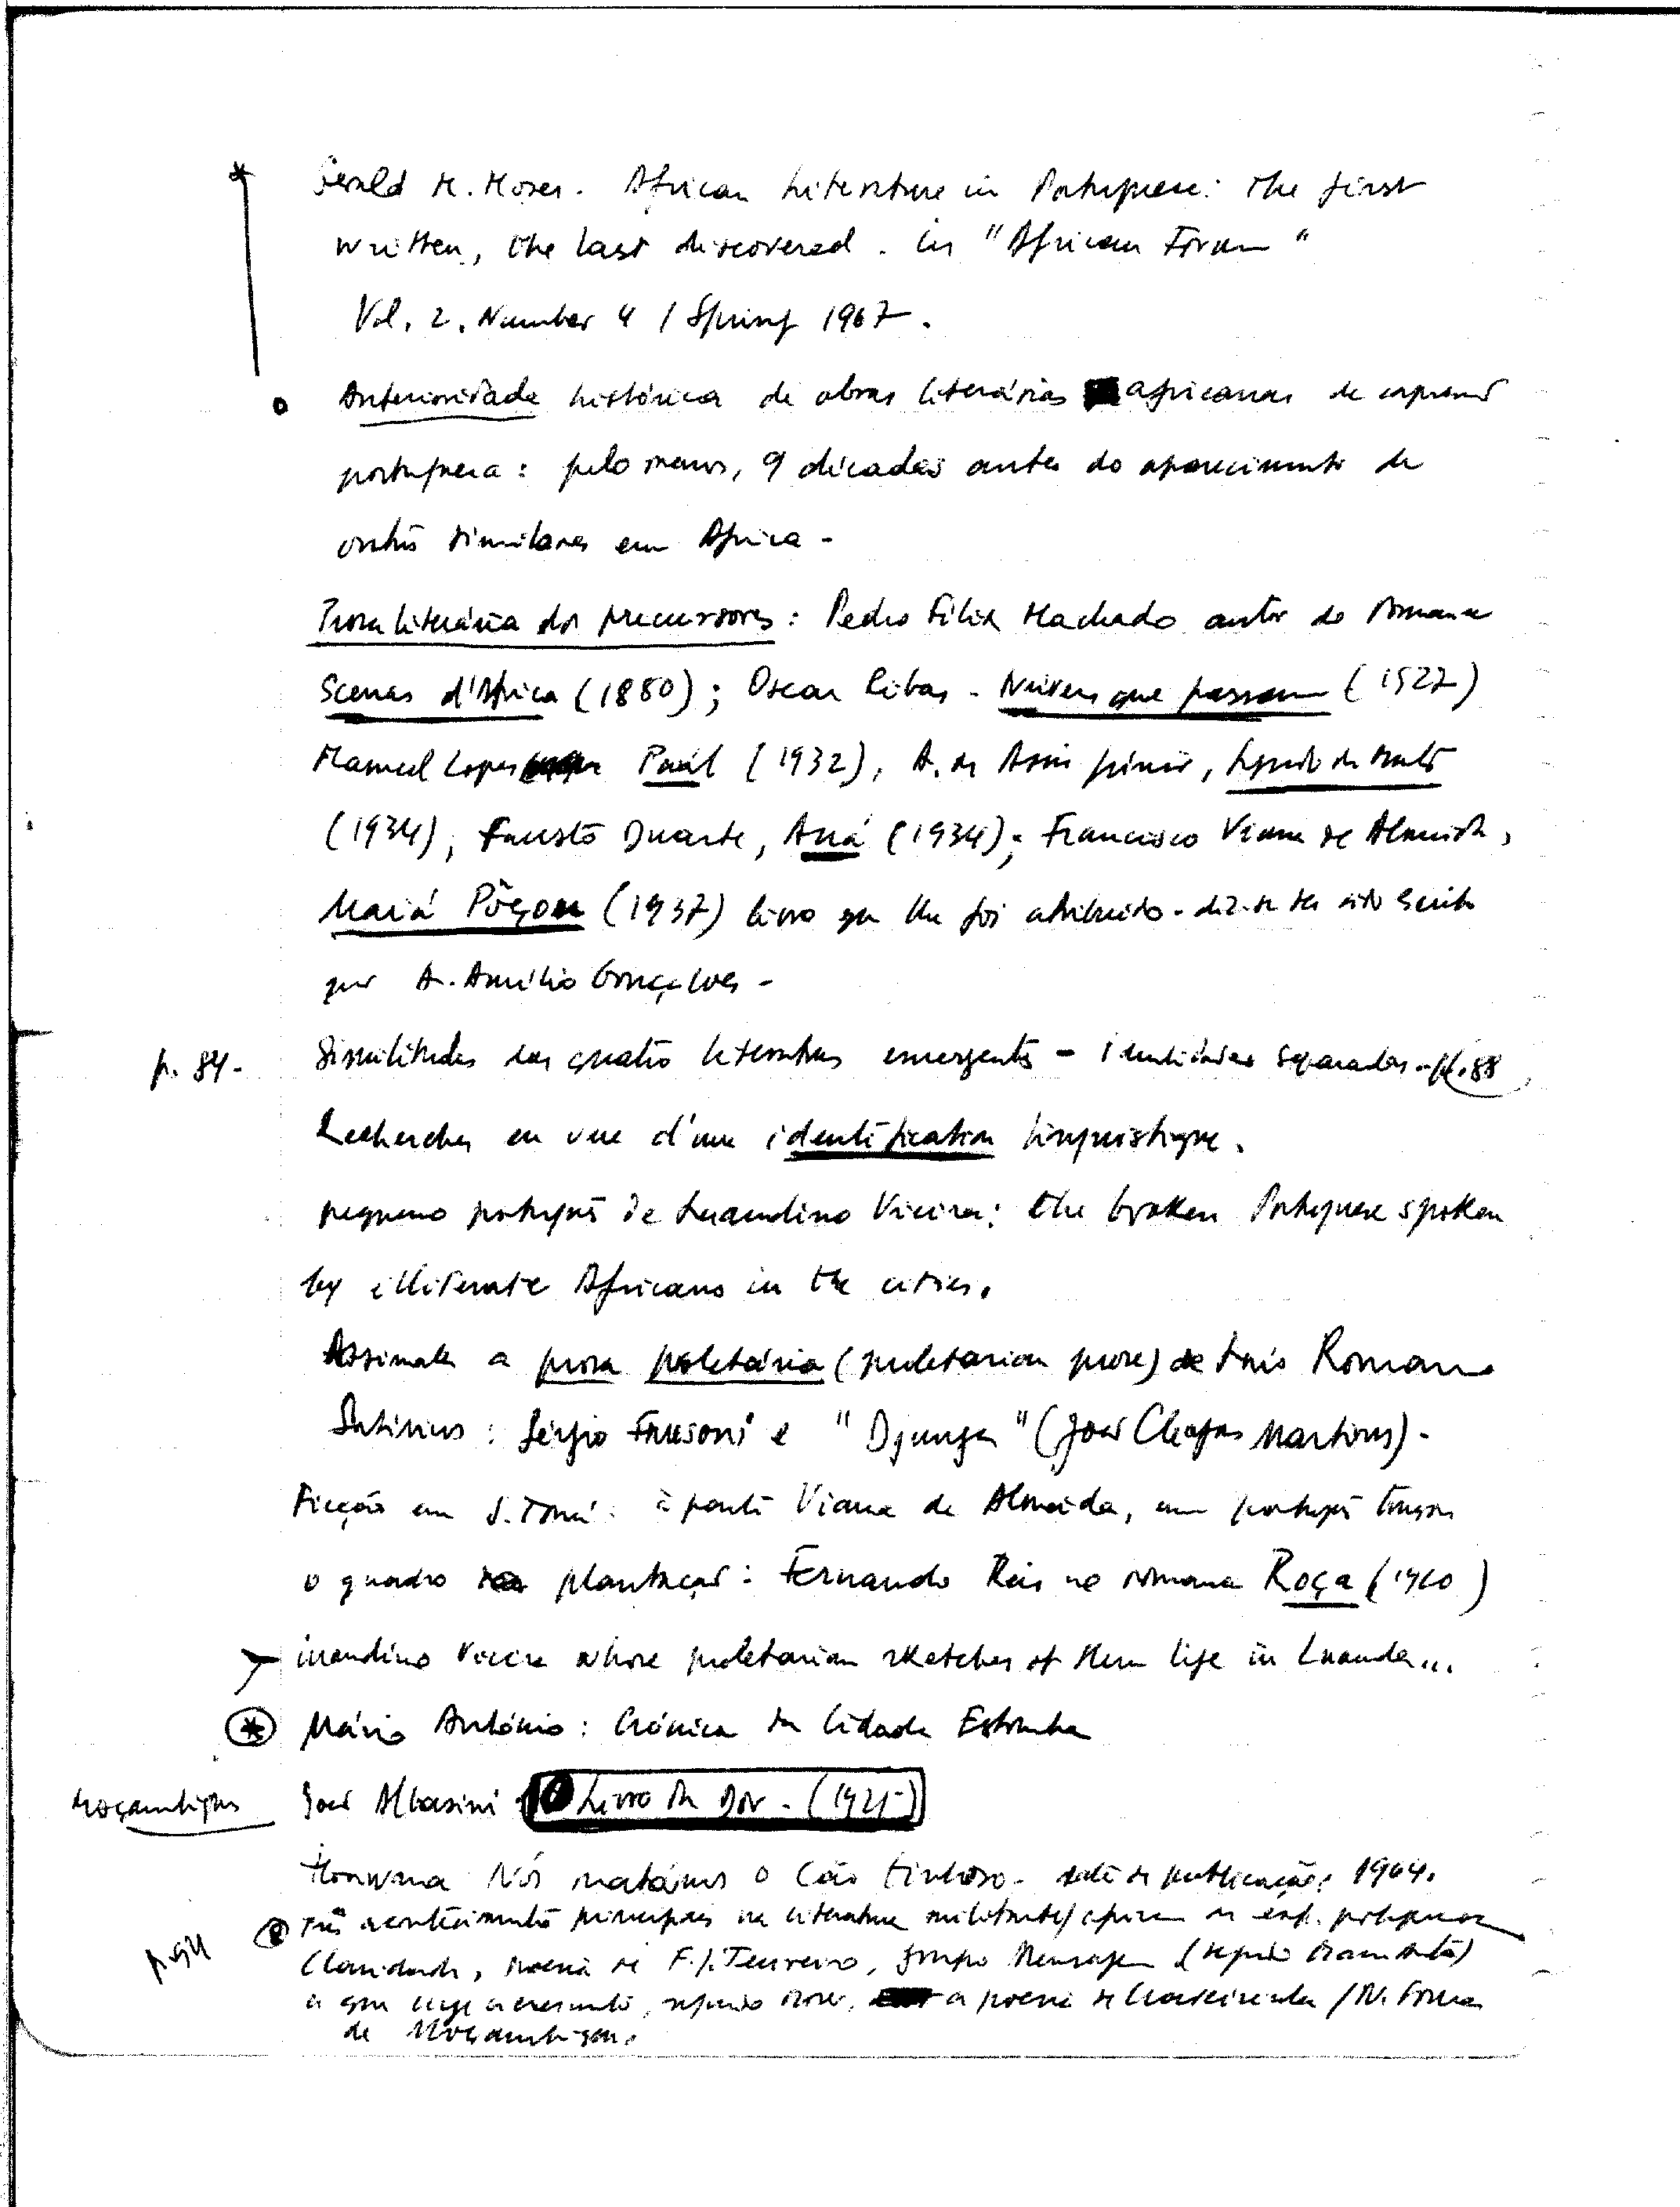 * Gerald M. Moser. African Literature in Portuguese: the first
written, the last discovered. in "African Forum"
Vol. 2. Number 4 / Spring 1967.
o Anterioridade histórica de obras literárias africanas de expressão
portuguesa: pelo menos, 9 décadas antes do aparecimento de
outras similares em Africa -
Prosa literária dos precursores: Pedro Félix Machado autor do romance
Scenas d'Africa (1880); Oscar Ribas - Nuvens que passam (1927)
Manuel Lopes Paúl (1932), A. de Assis Júnior, Segredo da Morta
(1934), Fausto Duarte, Auá (1934); Francisco Viana de Almeida,
Maiá Pòçon (1937) livro que lhe foi atribuído - diz-se ter sido escrito
por A. Aurélio Gonçalves -
p. 84 - Similitudes das quatro literaturas emergentes - identidades separadas - p. 88
Recherches en vue d'une identification linguistique.
pequeno português de Luandino Vieira: the broken Portuguese spoken
by illiterate Africans in the cities.
Assinala a prosa proletária (proletarian prose) de Luís Romano
Satíricos: Sérgio Frusoni e "Djunga" (João Cleofas Martins) -
Ficção em S. Tomé: à parte Viana de Almeida, um português traçou
o quadro plantação: Fernando Reis no romance Roça (1960)
Luandino Vieira whose proletarian sketches of slum life in Luanda...
* Mário António: Crónica da Cidade Estranha
Moçambique João Albasini O Livro da Dor - (1925)
Honwana Nós matámos o Cão tinhoso - data de publicação: 1964.
p. 94 Três acontecimentos principais na literatura militante africana de exp. portuguesa
Claridade, poesia de F. J. Tenreiro, grupo Mensagem (segundo Mário António)
a que urge acrescentar, segundo Moser, a poesia de Craveirinha / N. Sousa
de Moçambique.